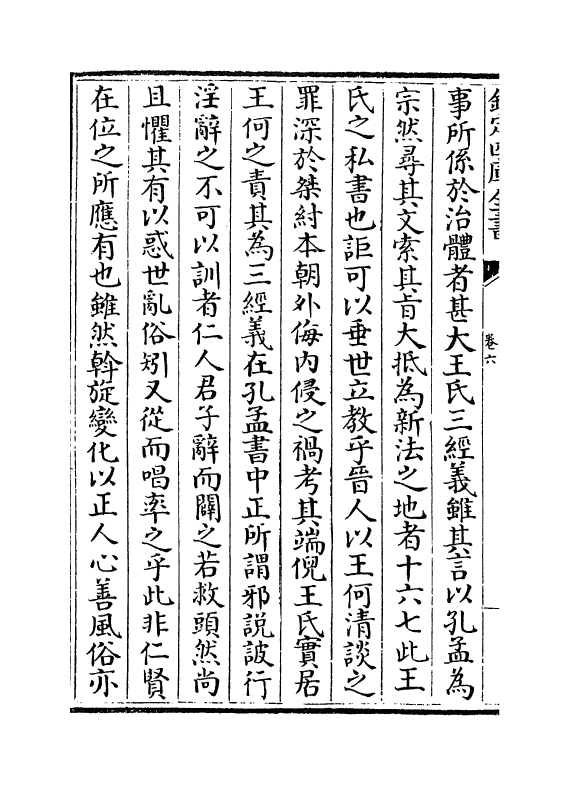 欽定四庫全書
卷六
事所係於治體者甚大王氏三經義雖其言以孔孟為
宗然尋其文索其旨大抵為新法之地者十六七此王
氏之私書也詎可以垂世立教乎晉人以王何清談之
罪深於桀紂本朝外侮内侵之禍考其端倪王氏實居
王何之責其為三經義在孔孟書中正所謂邪説詖行
淫辭之不可以訓者仁人君子辭而闢之若救頭然尚
且懼其有以惑世亂俗矧又從而唱率之乎此非仁賢
在位之所應有也雖然斡旋變化以正人心善風俗亦